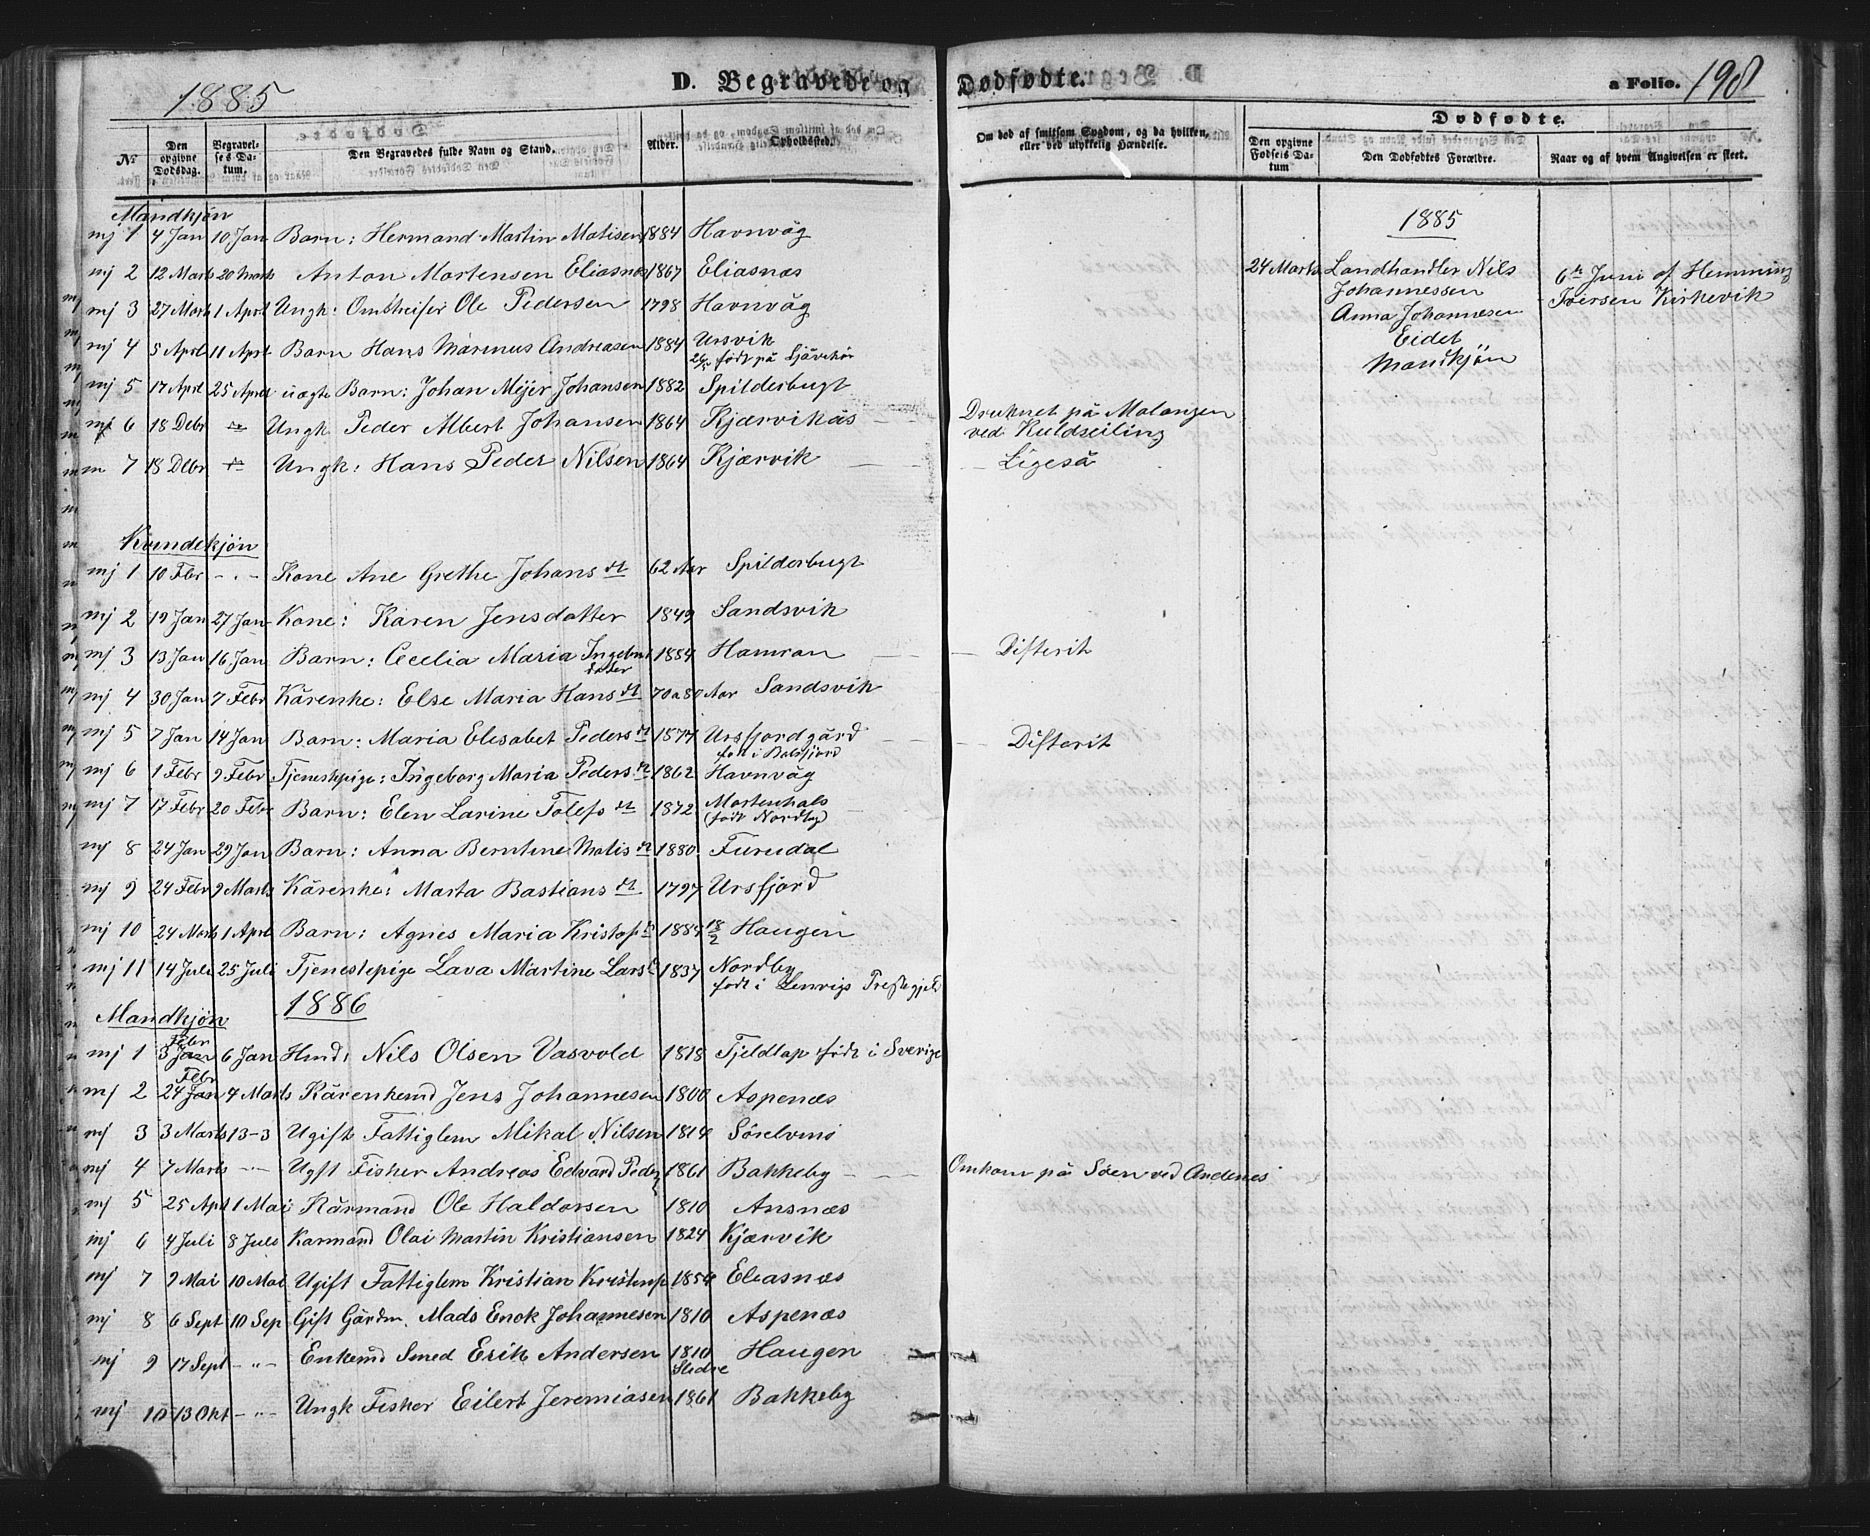 1885 D. Begravede og Dødfødte. a Folio. 198
Dødfødte.
No. Den opgivne Dødsdag. Begravelses Datum. Den Begravedes fulde Navn og Stand. Alder. Opholdssted. Om død af smitsom Sygdom, og da hvilken, eller ved ulykkelig Hændelse. Den opgivne Fødsels Datum Den Dødfødtes Forældre. Naar og af hvem Angivelsen er skeet.
Mandkjøn
mj 1 4 Jan 10 Jan Barn: Hermand Martin Matisen 1884 Havnvåg
mj 2 12 Marts 20 Marts Anton Mortensen Eliasnæs 1867 Eliasnæs
mj 3 27 Marts 1 April Ungk: Omstreifer Ole Pedersen 1798 Havnvåg
mj 4 5 April 11 April Barn Hans Marinus Andreasen 1884 Ursvik
født på
mj 5 17 April 25 April uægte Barn: Johan Mejer Johansen 1882 Spilderbugt
mj 6 18 Debr Ungk Peder Albert Johansen 1864 Kjærvikås Druknet på Malangen
ved Kuldseiling
m 7 18 Debr Ungk: Hans Peder Nilsen 1864 Kjærvik Ligeså
1885
24 Marts Landhandler Nils
Johannessen
Anna Johannesen
Eidet
Mandkjøn
6te Juni af Hemming
Iversen Kirkevik
Kvindekjøn
mj 1 10 Febr - " - Kone Ane Grethe Johans dt 62 Aar Spilderbugt
mj 2 19 Jan 27 Jan Kone: Karen Jensdatter 1849 Sandsvik
mj 3 13 Jan 16 Jan Barn: Cecelia Maria Ingebrt 1884 Hamran Difterit
dater
mj 4 30 Jan 7 Febr Kårenke: Else Maria Hans dt 70 a 80 Aar Sandsvik
mj 5 7 Jan 14 Jan Barn: Maria Elisabet Peders dt 1877 Ursfjordgård Difterit
født i Balsfjord
mj 6 1 Febr 9 Febr Tjenestepige: Ingeborg Maria Peders dt 1862 Havnvåg
mj 7 17 Febr 20 Febr Barn: Elen Larine Tolefs dt 1872 Mortenhals
(født Nordby)
mj 8 24 Jan 29 Jan Barn: Anna Berntine Matis dt 1880 Furudal
mj 9 24 Febr 9 Marts Kårenke: Marta Bastians dt 1797 Ursfjord
mj 10 24 Marts 1 April Barn: Agnes Maria Kristofs dt 1884 18/2 Haugen
mj 11 14 Juli 25 Juli Tjenestepige Lava Martine Lars dt 1837 Nordby
født i Lenvigs Præstegjeld
1886
Mandkjøn
Febr
mj 1 3 Jan 6 Jan Hmd: Nils Olsen Vasvold 1818 Fjeldlap født i Sverige
Febr
mj 2 24 Jan 4 Marts Kårenkemd Jens Johannesen 1800 Aspenæs
mj 3 3 Marts 13-3 Ugift Fattiglem Mikal Nilsen 1814
mj 4 7 Marts - - Ugft Fisker Andreas Edvard Peder 1861 Bakkeby Omkom på Søen ved Andenes
mj 5 25 Apl 1 Mai Kårmand Ole Haldorsen 1810 Ansnæs
mj 6 4 Juli 8 Juli Karmand Olai Martin Kristiansen 1824 Kjærvik
mj 7 2 Mai 10 Mai Ugift Fattiglem Kristian Kristenp 1854 Eliasnæs
mj 8 6 Sept 10 Sep Gift Gårdm. Mads Enok Johannesen 1810 Aspenæs
mj 9 17 Sept - " - Enkemd Smed Erik Andersen 1810 Haugen
mj 10 13 Okt - " - Ungk Fisker Eilert Jeremiasen 1861 Bakkeby